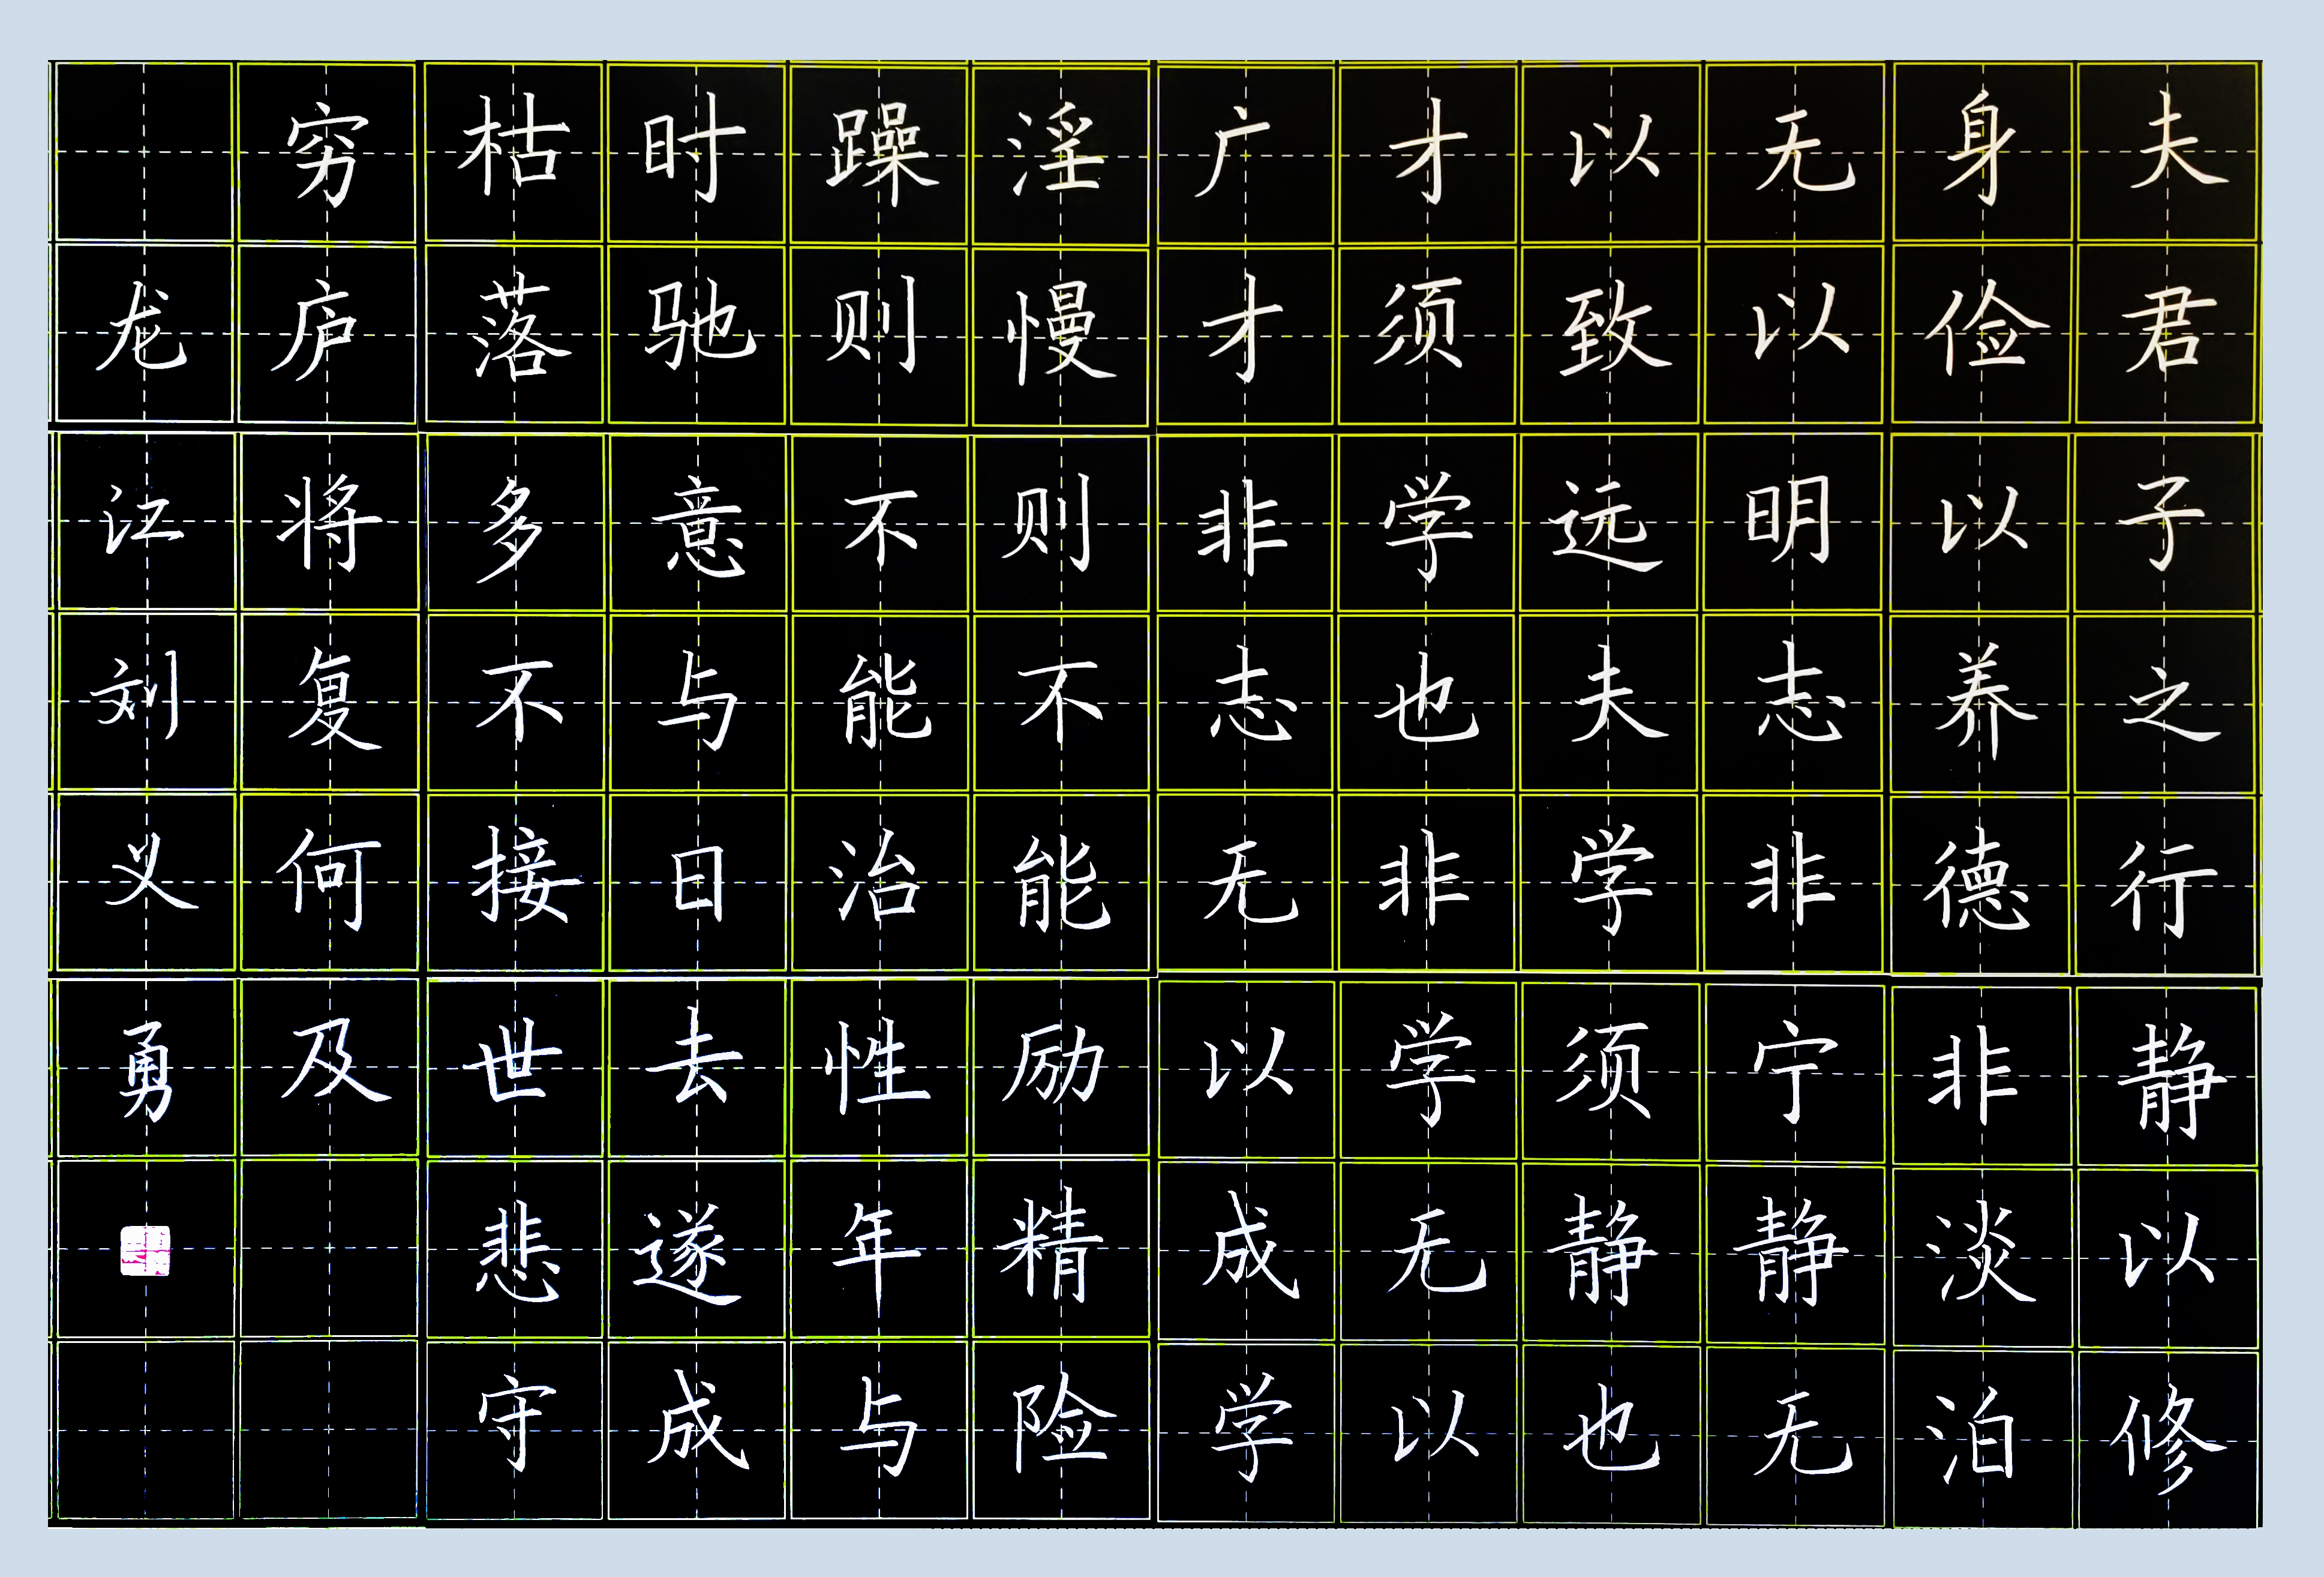 夫君子之行静以修
身俭以养德非淡泊
无以明志非宁静无
以致远夫学须静也
才须学也非学无以
广才非志无以成学
淫慢则不能励精险
躁则不能治性年与
时驰意与日去遂成
枯落多不接世悲守
穷庐将复何及
龙江刘义勇